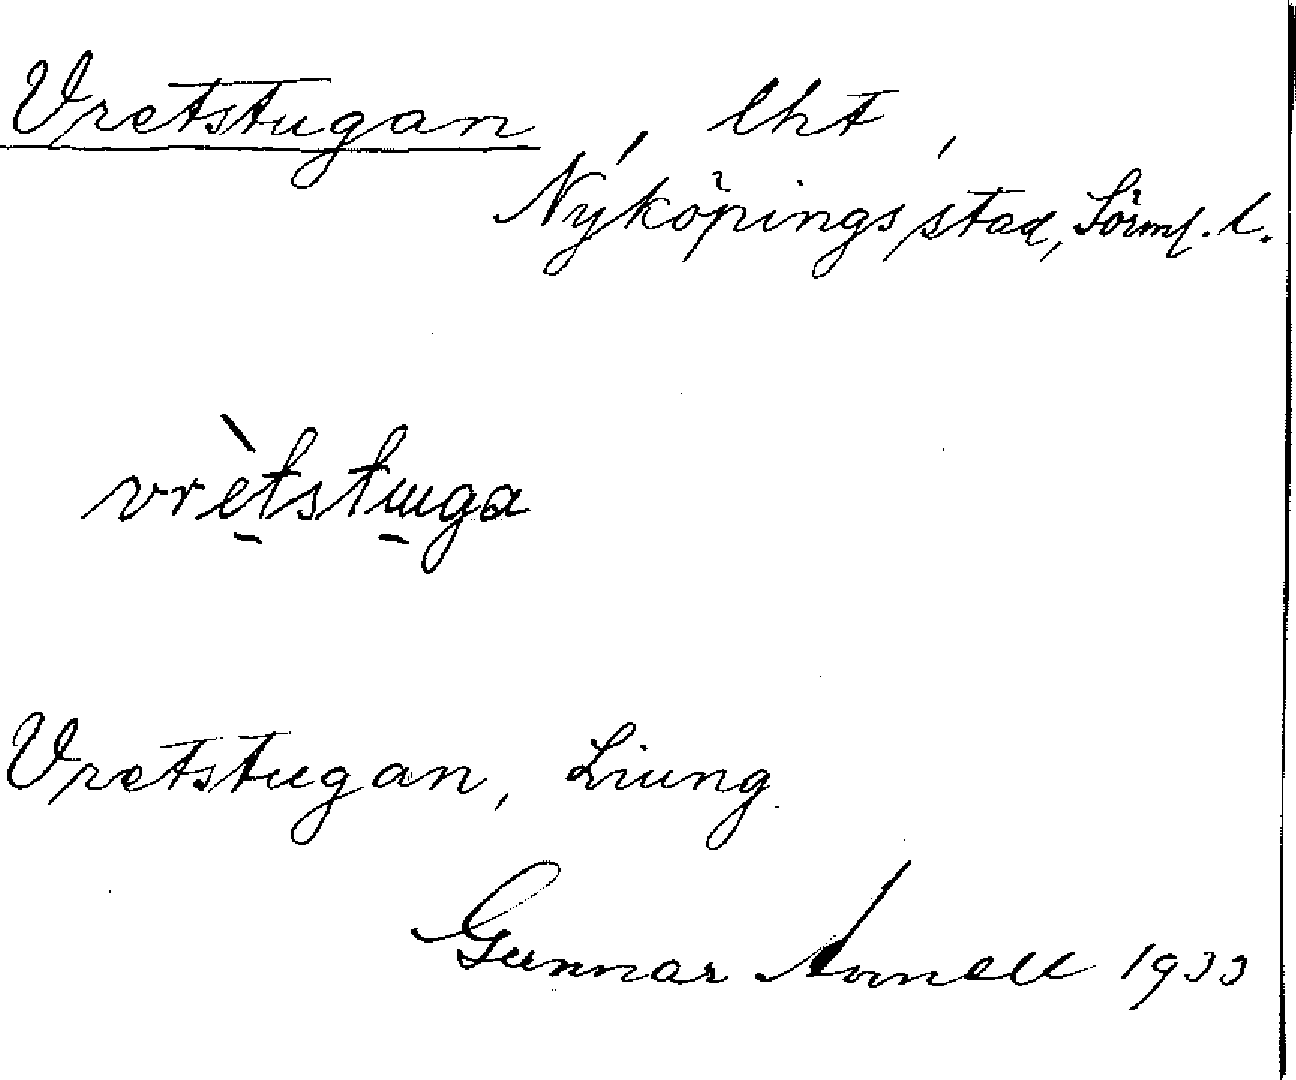 Vretstugan, lht,
Nyköpings stad, Sörml. l.
vrètstuga
Vretstugan, Ljung
Gunnar 1933